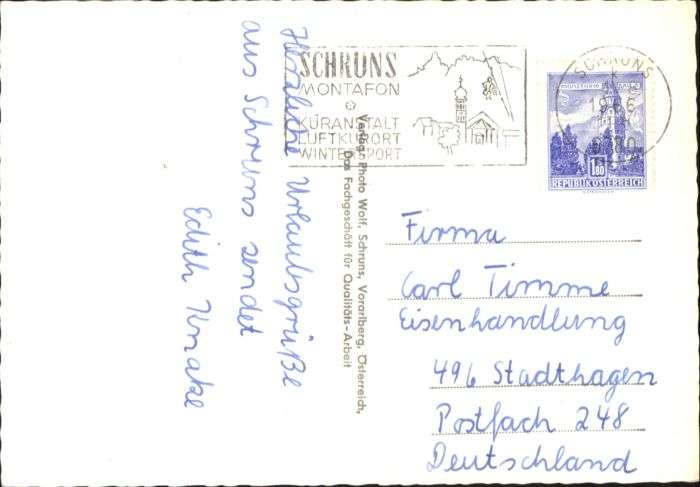 Herzliche Urlaubsgrüße
aus Schruns sendet
Edith Knake
Verlag: Photo Wolf, Schruns, Vorarlberg, Österreich,
Das Fachgeschäft für Qualitäts-Arbeit
SCHRUNS
MONTAFON
KURANSTALT
LUFTKURORT
WINTERSPORT
SCHRUNS
1.80
REPUBLIK ÖSTERREICH
Firma
Carl Timme
Eisenhandlung
496 Stadthagen
Postfach 248
Deutschland